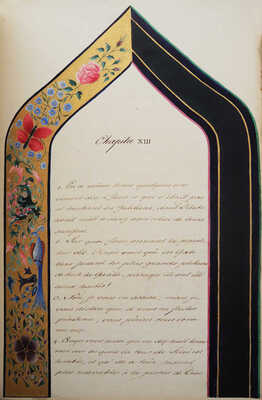 Chapitre XIII
1. En ce même temps quelques uns
vinrent dire à Jésus ce qui s'était passé
au sujet des Galiléens, dont Pilate
avait mêlé le sang avec celui de leurs
sacrifices.
2. Sur quoi Jésus prenant la parole
leur dit: Croyez-vous que ces Gali-
léens fussent les plus grands pécheurs
de toute la Galilée, parce qu'ils ont été
ainsi traités?
3. Non, je vous en assure; mais je
vous déclare que si vous ne faites
pénitence, vous périrez tous com-
me eux.
4. Croyez-vous aussi que ces dix-huit hom-
mes sur lesquels la tour de Siloé est
tombée, et qu'elle a tués, fussent
plus redevables à la justice de Dieu